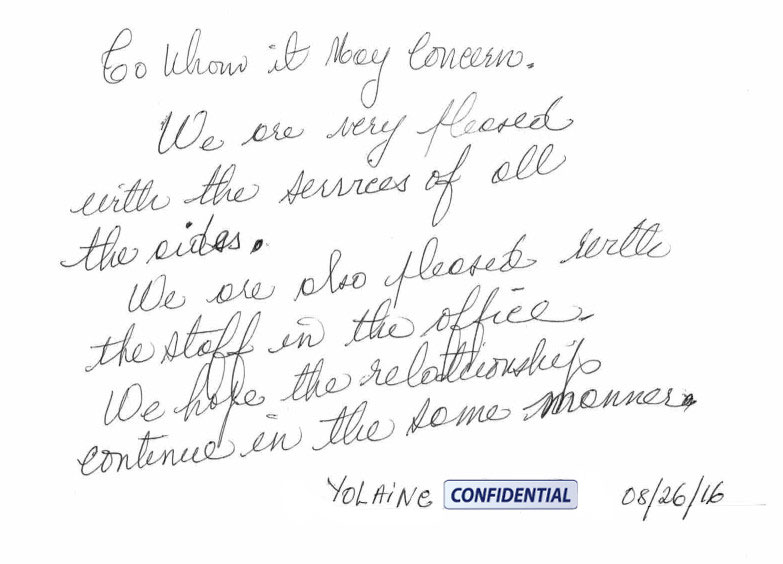 To Whom it May Concern.
We are very pleased
with the services of all
the aides.
We are also pleased with
the staff in the office.
We hope the relationship
continue in the same manner.
YOLAINE CONFIDENTIAL 08/26/16